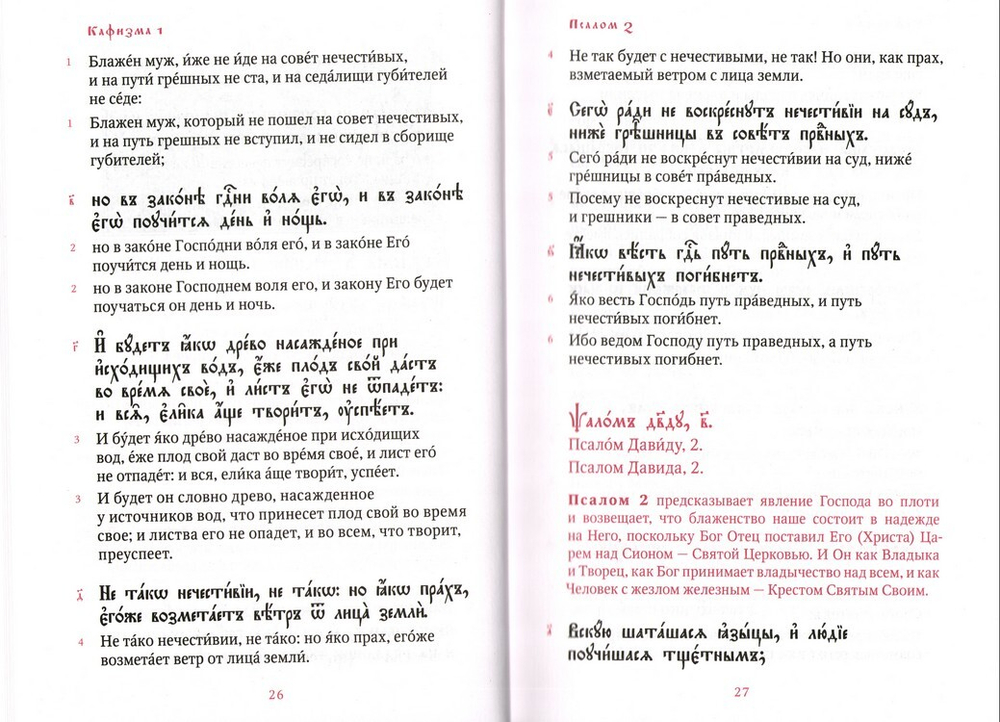 Кафизма 1
1 Блаже́н муж, и́же не и́де на сове́т нечести́вых,
и на пути́ гре́шных не ста, и на седа́лищи губи́телей
не се́де:
1 Блажен муж, который не пошел на совет нечестивых,
и на путь грешных не вступил, и не сидел в сборище
губителей;
в҃ но въ зако́нѣ гдⷭ҇ни во́лѧ є҆гѡ̀, и въ зако́нѣ
є҆гѡ̀ поꙋчи́тсѧ де́нь и҆ но́щь.
2 но в зако́не Госпо́дни во́ля его́, и в зако́не Его́
поучи́тся день и нощь.
2 но в законе Господнем воля его, и закону Его будет
поучаться он день и ночь.
г҃ И҆ бꙋ́детъ ꙗ҆́кѡ дре́во насажде́ное при
и҆схо́дищихъ во́дъ, є҆́же пло́дъ сво́й да́стъ
во вре́мѧ своѐ, и҆ ли́стъ є҆гѡ̀ не ѿпаде́тъ:
и всѧ̑, є҆ли̑ка а҆́ще твори́тъ, ᲂу҆спѣ́етъ.
3 И бу́дет я́ко дре́во насажде́ное при исхо́дищих
вод, е́же плод свой даст во вре́мя свое́, и лист его́
не отпаде́т: и вся, ели́ка а́ще твори́т, успе́ет.
3 И будет он словно древо, насажденное
у источников вод, что принесет плод свой во время
свое; и листва его не опадет, и во всем, что творит,
преуспеет.
д҃ Не та́кѡ нечести́вїи, не та́кѡ: но ꙗ҆́кѡ пра́хъ,
є҆го́же возмета́етъ вѣ́тръ ѿ лица̀ землѝ.
4 Не та́ко нечести́вии, не та́ко: но я́ко прах, его́же
возмета́ет ветр от лица́ земли́.
26
Псалом 2
4 Не так будет с нечестивыми, не так! Но они, как прах,
взметаемый ветром с лица земли.
є҃ Сегѡ̀ ра́ди не воскре́снꙋтъ нечести́вїи на сꙋ́дъ,
нижѐ грѣ̑шницы въ совѣ́тъ првⷣныхъ.
5 Сего́ ра́ди не воскре́снут нечести́вии на суд, ниже́
гре́шницы в сове́т пра́ведных.
5 Посему не воскреснут нечестивые на суд,
и грешники — в совет праведных.
ѕ҃ Ꙗ҆́кѡ вѣ́сть гдⷭ҇ь пꙋ́ть првⷣныхъ, и҆ пꙋ́ть
нечести́выхъ поги́бнетъ.
6 Я́ко весть Госпо́дь путь пра́ведных, и путь
нечести́вых поги́бнет.
6 Ибо ведом Господу путь праведных, а путь
нечестивых погибнет.
Ѱало́мъ дв҃дꙋ, в҃.
Псало́м Дави́ду, 2.
Псалом Давида, 2.
Псалом 2 предсказывает явление Господа во плоти
и возвещает, что блаженство наше состоит в надежде
на Него, поскольку Бог Отец поставил Его (Христа) Ца-
рем над Сионом — Святой Церковью. И Он как Владыка
и Творец, как Бог принимает владычество над всем, и как
Человек с жезлом железным — Крестом Святым Своим.
а҃ Вскꙋ́ю шата́шасѧ ꙗ҆зы́цы, и҆ лю́дїе
поꙋчи́шасѧ тщє́тнымъ;
27